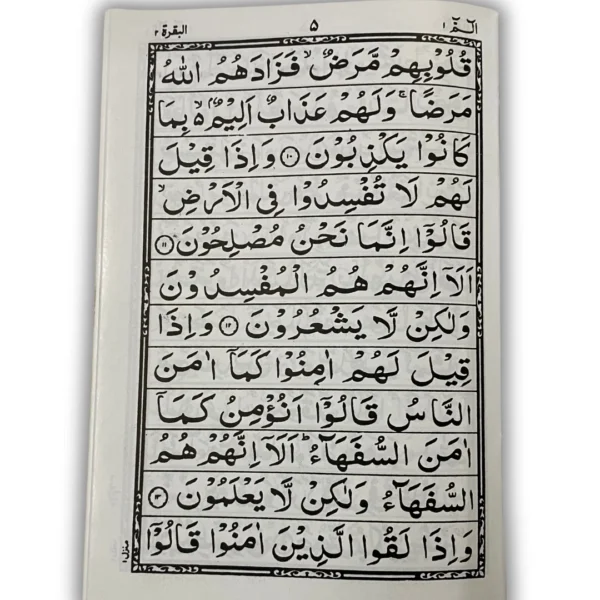 الٓمّٓ ١ ٥ البقرة ٢
قُلُوۡبِهِمۡ مَّرَضٌ ۙ فَزَادَهُمُ اللّٰهُ
مَرَضًا ۚ وَلَهُمۡ عَذَابٌ اَلِيۡمٌۢ ۙ۬ بِمَا
كَانُوۡا يَكۡذِبُوۡنَ ۝١٠ وَاِذَا قِيۡلَ
لَهُمۡ لَا تُفۡسِدُوۡا فِى الۡاَرۡضِ ۙ
قَالُوۡٓا اِنَّمَا نَحۡنُ مُصۡلِحُوۡنَ ۝١١
اَلَاۤ اِنَّهُمۡ هُمُ الۡمُفۡسِدُوۡنَ
وَلٰكِنۡ لَّا يَشۡعُرُوۡنَ ۝١٢ وَاِذَا
قِيۡلَ لَهُمۡ اٰمِنُوۡا كَمَاۤ اٰمَنَ
النَّاسُ قَالُوۡٓا اَنُؤۡمِنُ كَمَاۤ
اٰمَنَ السُّفَهَآءُ ؕ اَلَاۤ اِنَّهُمۡ هُمُ
السُّفَهَآءُ وَلٰكِنۡ لَّا يَعۡلَمُوۡنَ ۝١٣
وَاِذَا لَقُوا الَّذِيۡنَ اٰمَنُوۡا قَالُوۡٓا
منزل ١